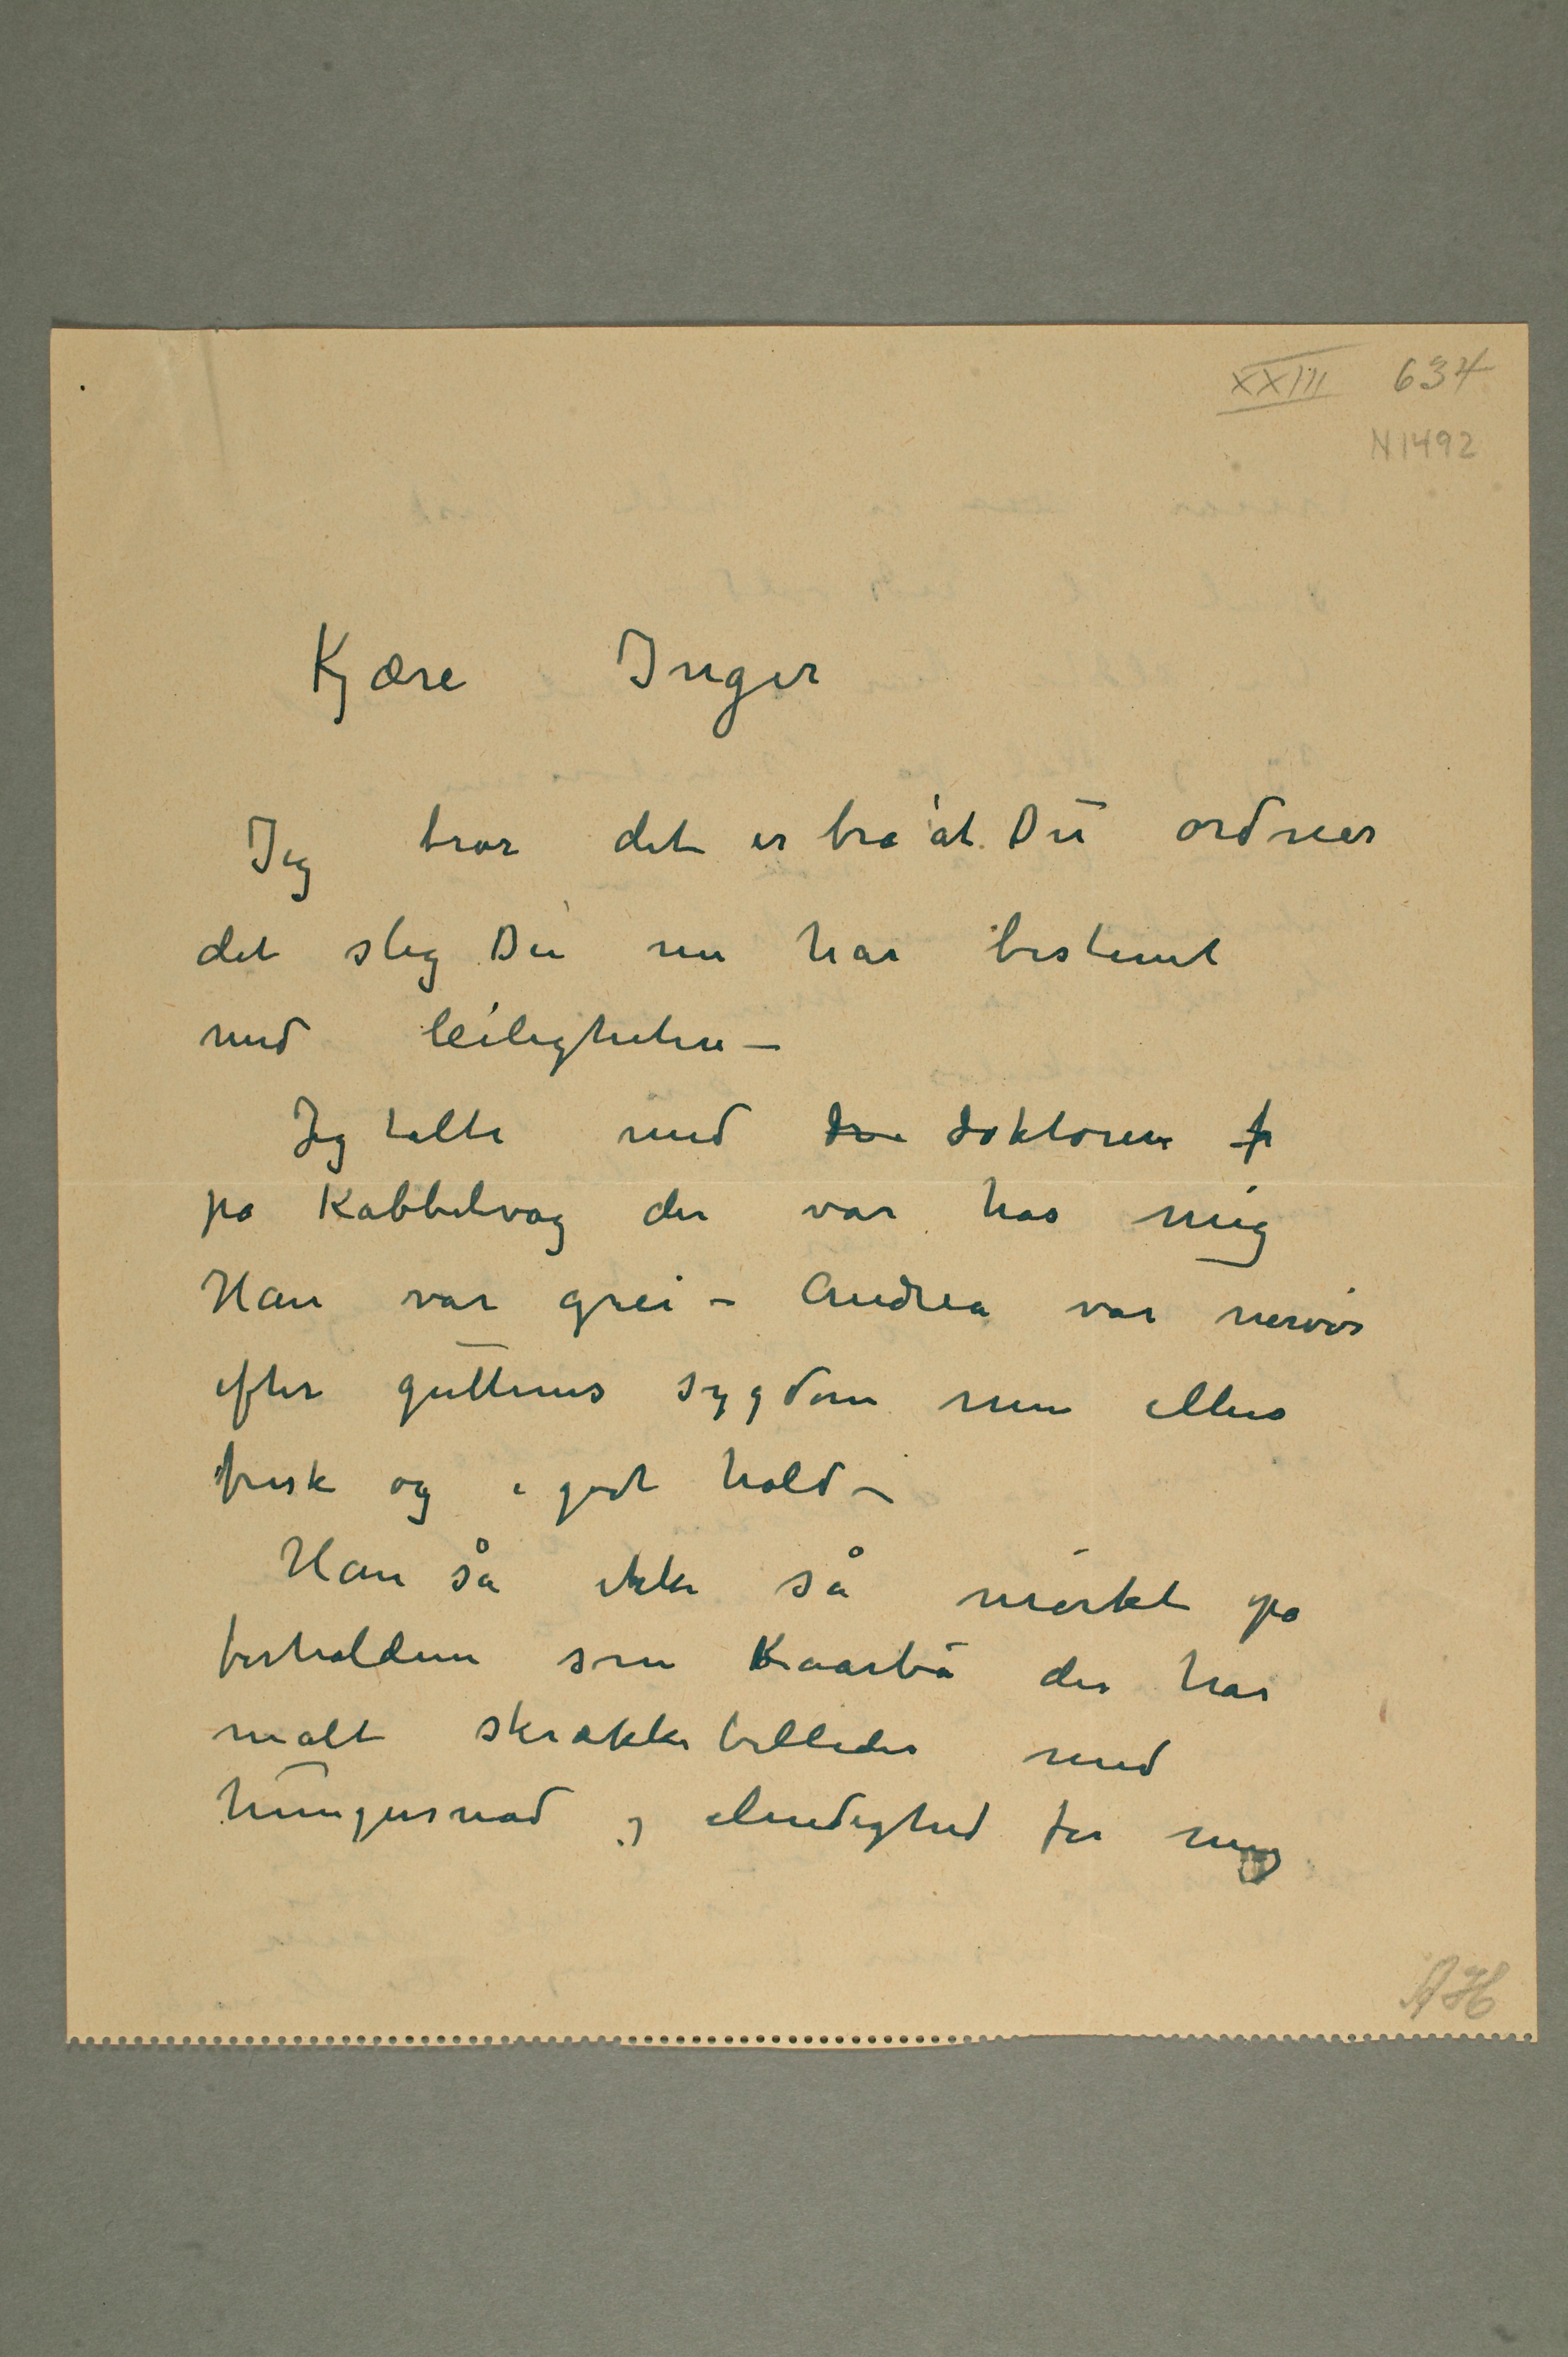 XXIII 634
N1492
Kjære Inger
Jeg tror det er bra at Du ordner
det slig Du nu har bestemt
med leiligheten –
Jeg talte med den doktoren fr
på Kabbelvåg der var hos mig
Han var grei – Andrea var nervøs
efter guttenes sygdom men ellers
frisk og i godt hold –
Han så ikke så mørkt på
forholdene som Kaarbø der har
malt skrækkebilleder med
hungersnød og elendighed for mig
AH